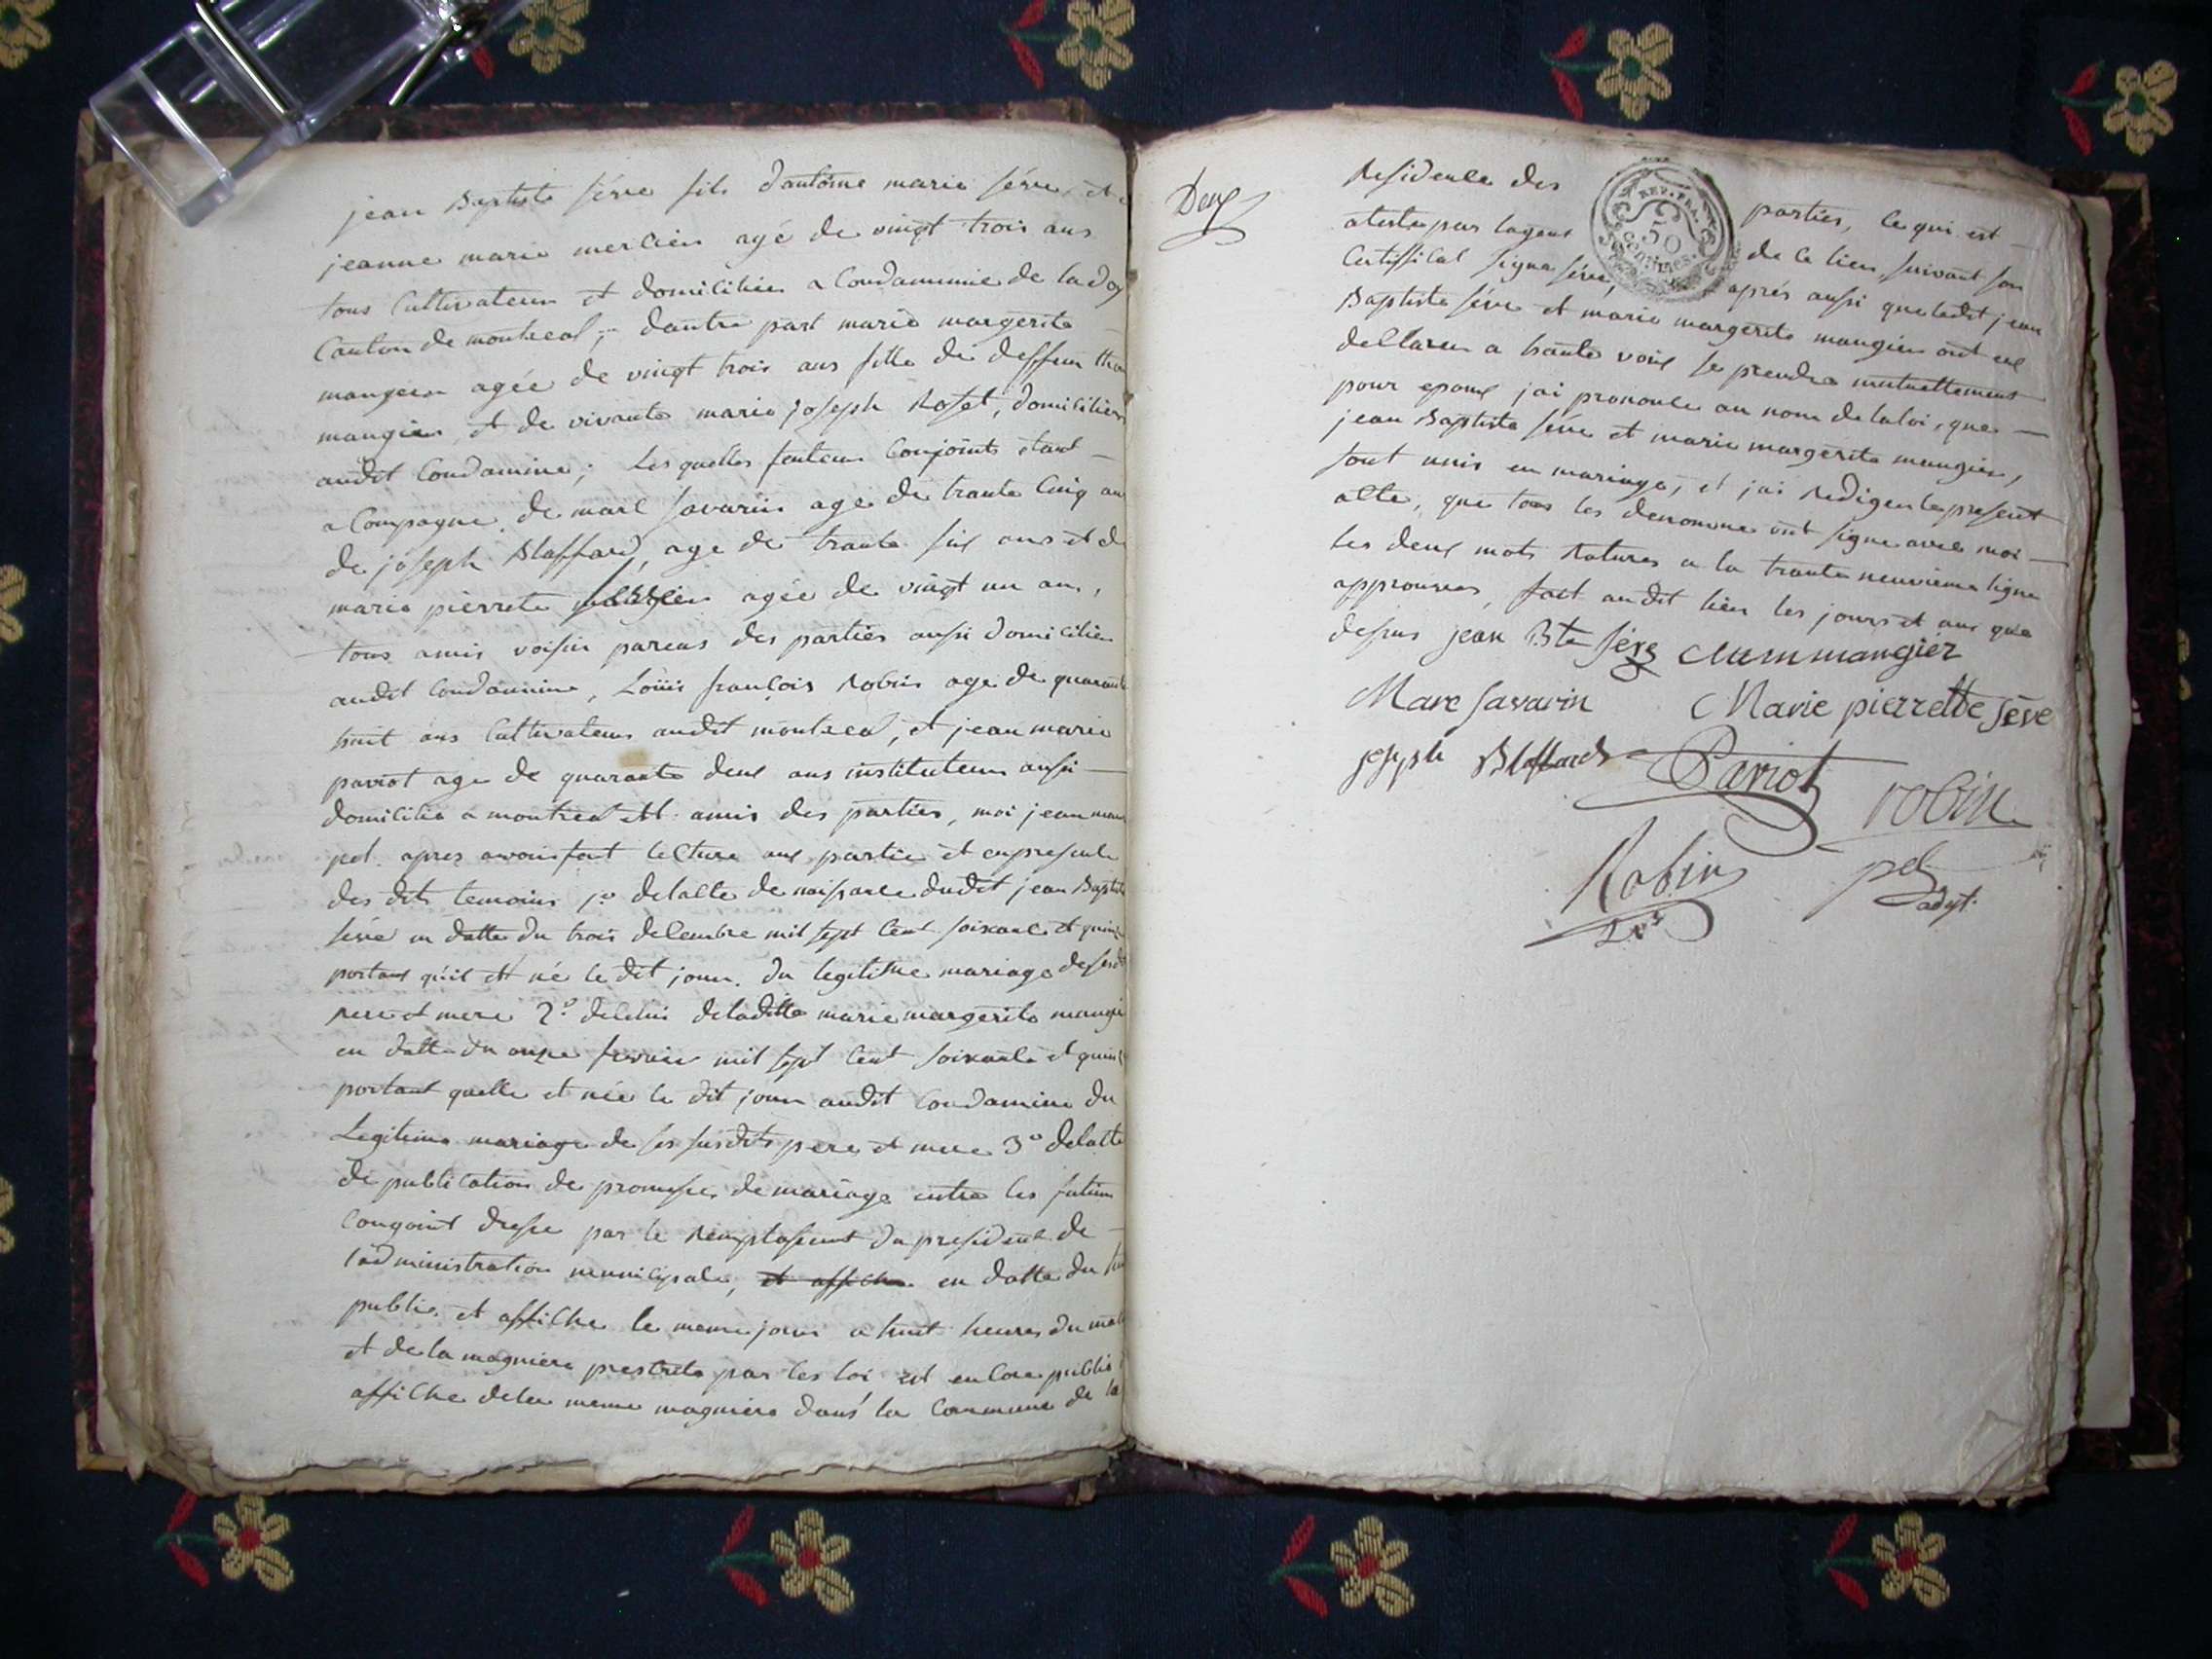 jean Baptiste séve fils dantoine marie séve, et
jeanne marie mercier agé de vingt trois ans
tous Cultivateurs et domiciliés a Condaminne de la doy
Canton de montreal, dautre part marie margerite
mangier agée de vingt trois ans fille de deffun
mangier, et de vivante marie joseph Roset, domiciliés
audit Condamine; Lesquelles futeurs Conjoints etant
a Compagne de marc savarin age de trante Cinq an
de joseph Blaffard, age de trante six ans et de
marie pierrete agée de vingt un an,
tous amis voisin parens des parties aussi domicilies
audit Condamine, Loüis françois Robin age de quarante
huit ans Cultivateur audit montreal, et jean marie
pariot age de quarante deux ans instituteur aussi
domicilie a montreal et amis des parties, moi jean marie
pel. apres avoir fait lecture aux partie et en presence
des dits temoins 1º delacte de naissance dudit jean Baptiste
séve en datte du trois decembre mil sept Cent soixante et quinze
portant qu'il et né le dit jour. du legitime mariage de
pere et mere 2º de celui deladitte marie margerite mangier
en datte du onze fevrier mil sept Cent soixante et quinze
portant quelle et née le dit jour audit Condamine du
Legitime mariage de ses susdits pere et mere 3º delacte
de publication de promesse de mariage entre les futeurs
Congoint dresse par le Remplasent du president de
l'administration municipale, et affiche en datte du
publie et affiche le meme jour a huit heures du matin
et de la magniere prescrite par les loi et encore publie
affiche dela meme magniere dans la Commune de la
Deux
Residence des parties, ce qui est
ateste par lagent de ce lieu, suivant son
Certifficat signe séve, aprés aussi que ledit jean
REP. FRA.
50
centimes.
Baptiste séve et marie margerite mangier ont eue
declarer a haute voix se prendre mutuellement
pour epoux jai prononce au nom de la loi, que
jean Baptiste séve et marie margerite mangier,
sont unis en mariage, et jai Rediger le present
acte, que tous les denomme ont signe avec moi
les deux mots Ratures a la trante neuvieme ligne
approuves, fait audit lieu les jours et an que
desus jean Bte séve mangier
Marc savarin Marie pierrette séve
joseph Blaffard Pariot robin
Robin pel
adjt.